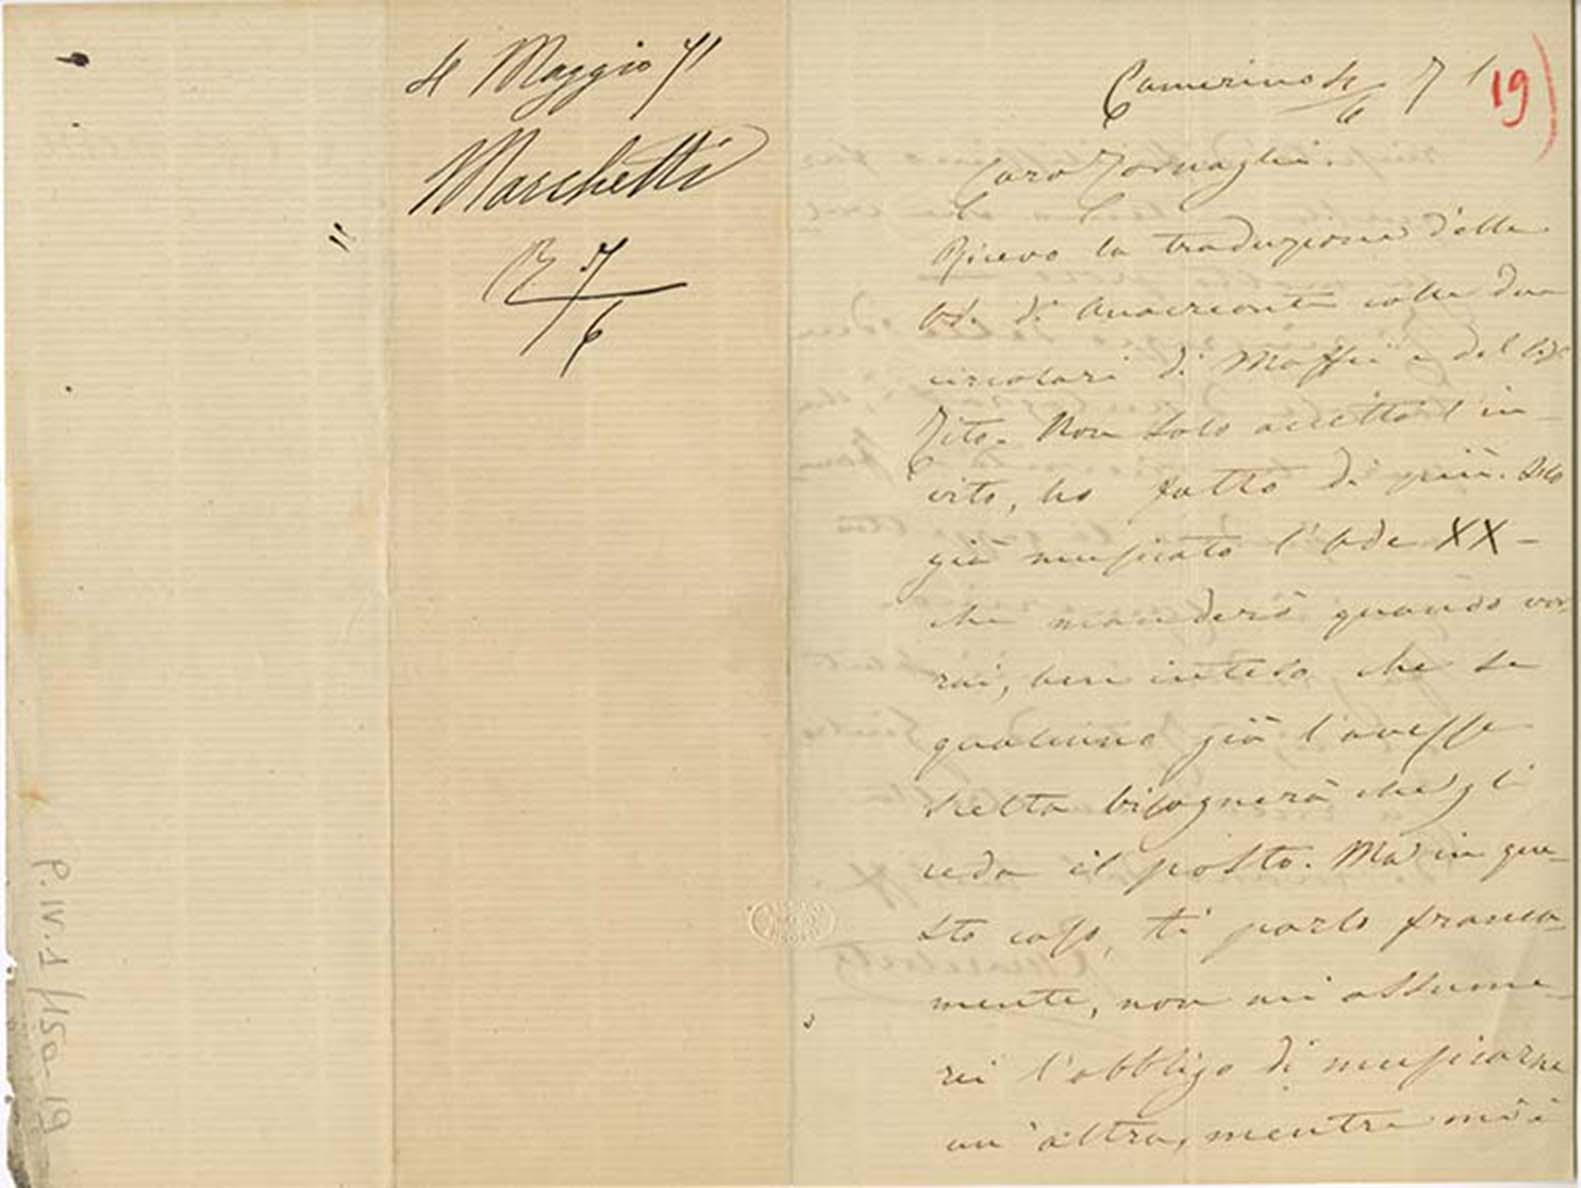 4 Maggio 71
Marchetti
R 7/6
P.IV.1/150-19
19)
Camerino 4/6 71
Caro Tornaghi.
Ricevo la traduzione delle
Odi di Anacreonte colle due
circolari di Maffei e del Sigr
Tito. Non solo accetto l'in-
vito, ho fatto di più. Ho
già musicato l'Ode XX-
che manderò quando vor
rai, ben inteso che se
qualcuno già l'avesse
scelta bisognerà che gli
ceda il posto. Ma in que-
sto caso, ti parlo franca-
mente, non mi assume-
rei l'obbligo di musicarne
un'altra, mentre mi è